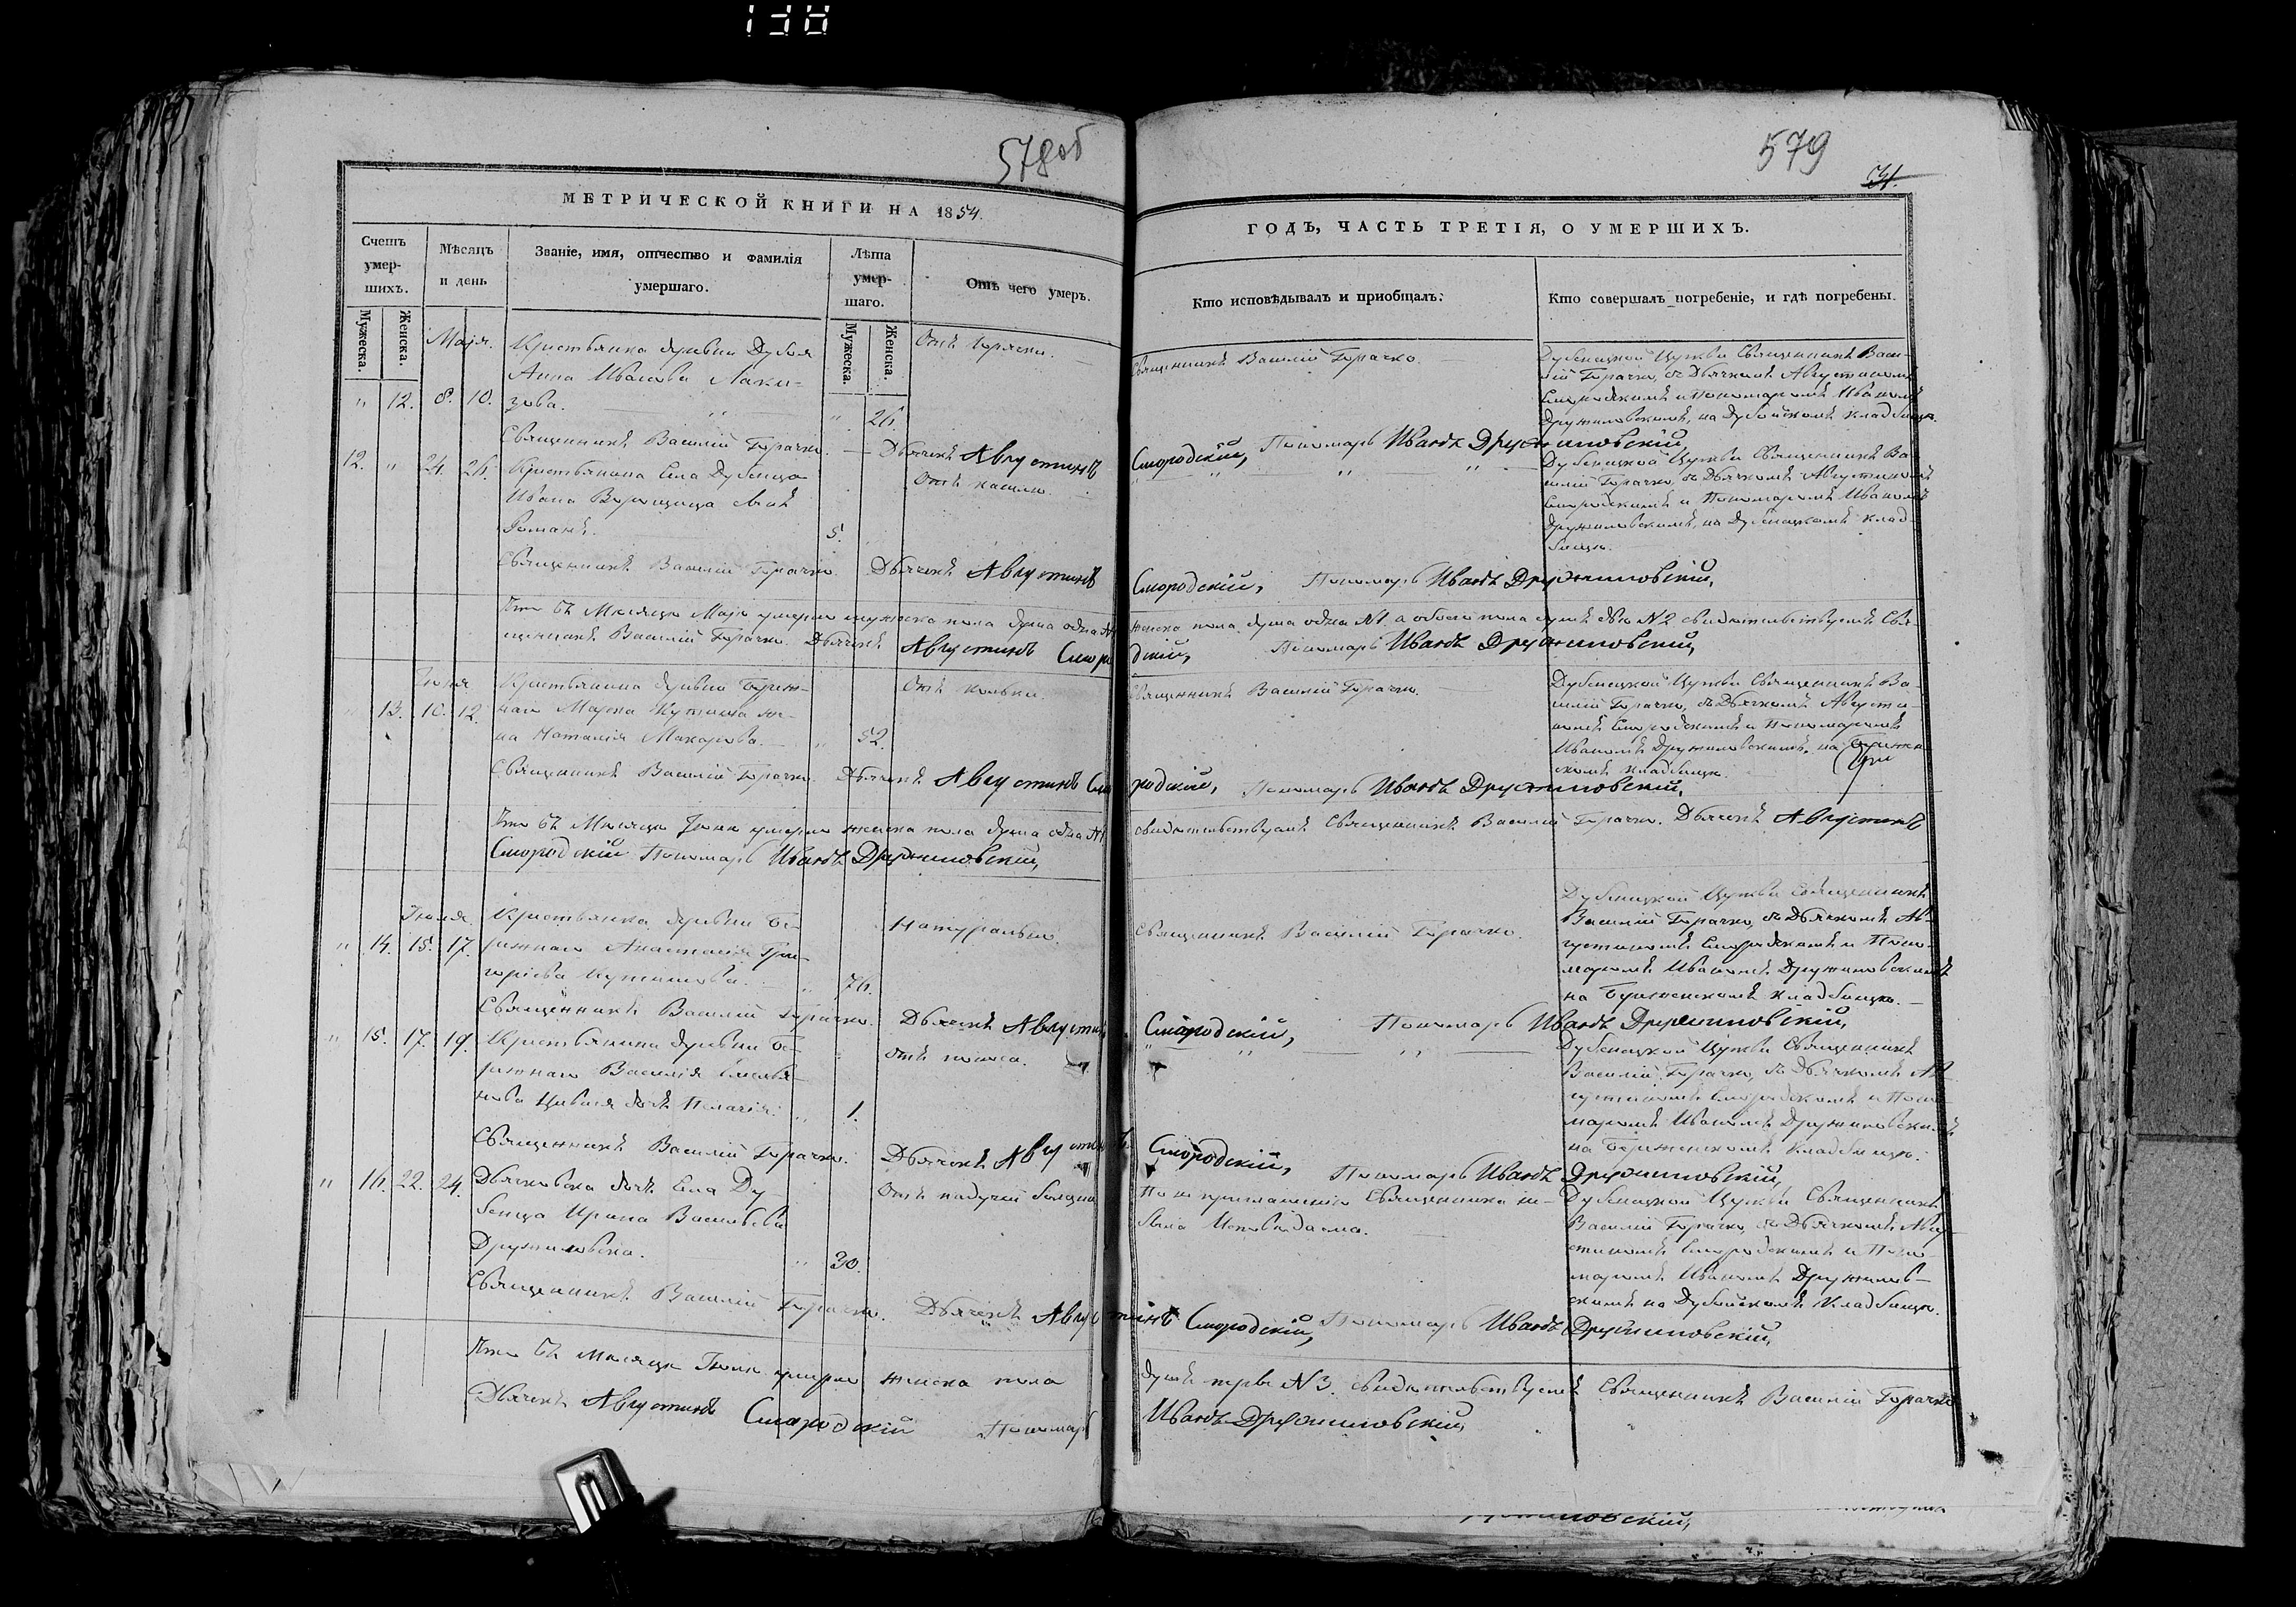 138
578об
579
31.
МЕТРИЧЕСКОЙ КНИГИ НА 1854.
ГОДЪ, ЧАСТЬ ТРЕТІЯ, О УМЕРШИХЪ.
Счетъ умер-
шихъ.
Мужеска.
Женска.
Мѣсяцъ
и день
Званіе, имя, отчество и фамилія
умершаго.
Лѣта
умер-
шаго.
Мужеска.
Женска.
Отъ чего умеръ.
Кто исповѣдывалъ и приобщалъ.
Кто совершалъ погребеніе, и гдѣ погребены.
Маія.
" 12. 8. 10.
Крестьянка деревни Дубоя
Анна Иванова
зова.
" 26.
Отъ горячки.
Священникъ Василій Горачко.
Дубенецкой Церкви Священникъ Васи-
лій Горачко, съ Дьячкомъ Августиномъ
Смородскимъ и Пономаремъ Иваномъ
Дружиловскимъ, на Дубойскомъ кладбище.
Священникъ Василій Горачко. — Дьячекъ Августинъ
Смородскій, Пономарь Иванъ Дружиловскій,
12. " 24. 26.
Крестьянина Села Дубенца
Ивана Ворощица сынъ
Романъ.
5.
Отъ кашлю.
" " "
Дубенецкой Церкви Священникъ Ва-
силій Горачко, съ Дьячкомъ Августиномъ
Смородскимъ и Пономаремъ Иваномъ
Дружиловскимъ, на Дубенецкомъ клад-
бище.
Священникъ Василій Горачко. Дьячекъ Августинъ
Смородскій, Пономарь Иванъ Дружиловскій,
Что въ Месяце Маіе умерло мужеска пола душа одна №1
женска пола душа одна №1 а обоего пола душъ две №2 свидетельствуемъ Свя-
щенникъ Василій Горачко. Дьячекъ Августинъ Сморо
дскій, Пономарь Иванъ Дружиловскій,
Іюня
" 13. 10. 12.
Крестьянина деревни Береж-
наго Марка же-
на Наталія Макарова.
" 52.
Отъ кольки.
Священникъ Василій Горачко.
Дубенецкой Церкви Священникъ Ва-
силій Горачко, съ Дьячкомъ Августи-
номъ Смородскимъ и Пономаремъ
Иваномъ Дружиловскимъ, на Бережен-
скомъ кладбище.
Священникъ Василій Горачко. Дьячекъ Августинъ Смо
родскій, Пономарь Иванъ Дружиловскій,
Что въ Месяце Іюне умерло женска пола душа одна №1
свидетельствуемъ Священникъ Василій Горачко. Дьячекъ Августинъ
Смородскій Пономарь Иванъ Дружиловскій,
Іюля
" 14. 15. 17.
Крестьянка деревни Бе-
режнаго Анастасія Гри-
горіева
" 76.
Натурально.
Священникъ Василій Горачко.
Дубенецкой Церкви Священникъ
Василій Горачко, съ Дьячкомъ Ав-
густиномъ Смородскимъ и Поно-
маремъ Иваномъ Дружиловскимъ
на Береженскомъ кладбище.
Священникъ Василій Горачко. Дьячекъ Августинъ
Смородскій, Пономарь Иванъ Дружиловскій,
" 15. 17. 19.
Крестьянина деревни Бе-
режнаго Василія
дочь Пелагія.
" 1.
отъ поноса.
" " "
Дубенецкой Церкви Священникъ
Василій Горачко, съ Дьячкомъ Ав-
густиномъ Смородскимъ и Поно-
маремъ Иваномъ Дружиловскимъ
на Береженскомъ Кладбище.
Священникъ Василій Горачко. Дьячекъ Августинъ
Смородскій, Пономарь Иванъ Дружиловскій,
" 16. 22. 24.
Дьячковска дочь Села Ду-
бенца Ирина Васильева
Дружиловска.
" 30.
Отъ падучей болезни
По не приглашенію Священника не
была Исповедана.
Дубенецкой Церкви Священникъ
Василій Горачко, съ Дьячкомъ Авгу-
стиномъ Смородскимъ и Поно-
маремъ Иваномъ Дружилов-
скимъ на Дубойскомъ Кладбище.
Священникъ Василій Горачко. Дьячекъ Августинъ
Смородскій, Пономарь Иванъ Дружиловскій,
Что въ Месяце Іюле умерло женска пола
душъ три №3. свидетельствуемъ Священникъ Василій Горачко
Дьячекъ Августинъ Смородскій Пономарь
Иванъ Дружиловскій,